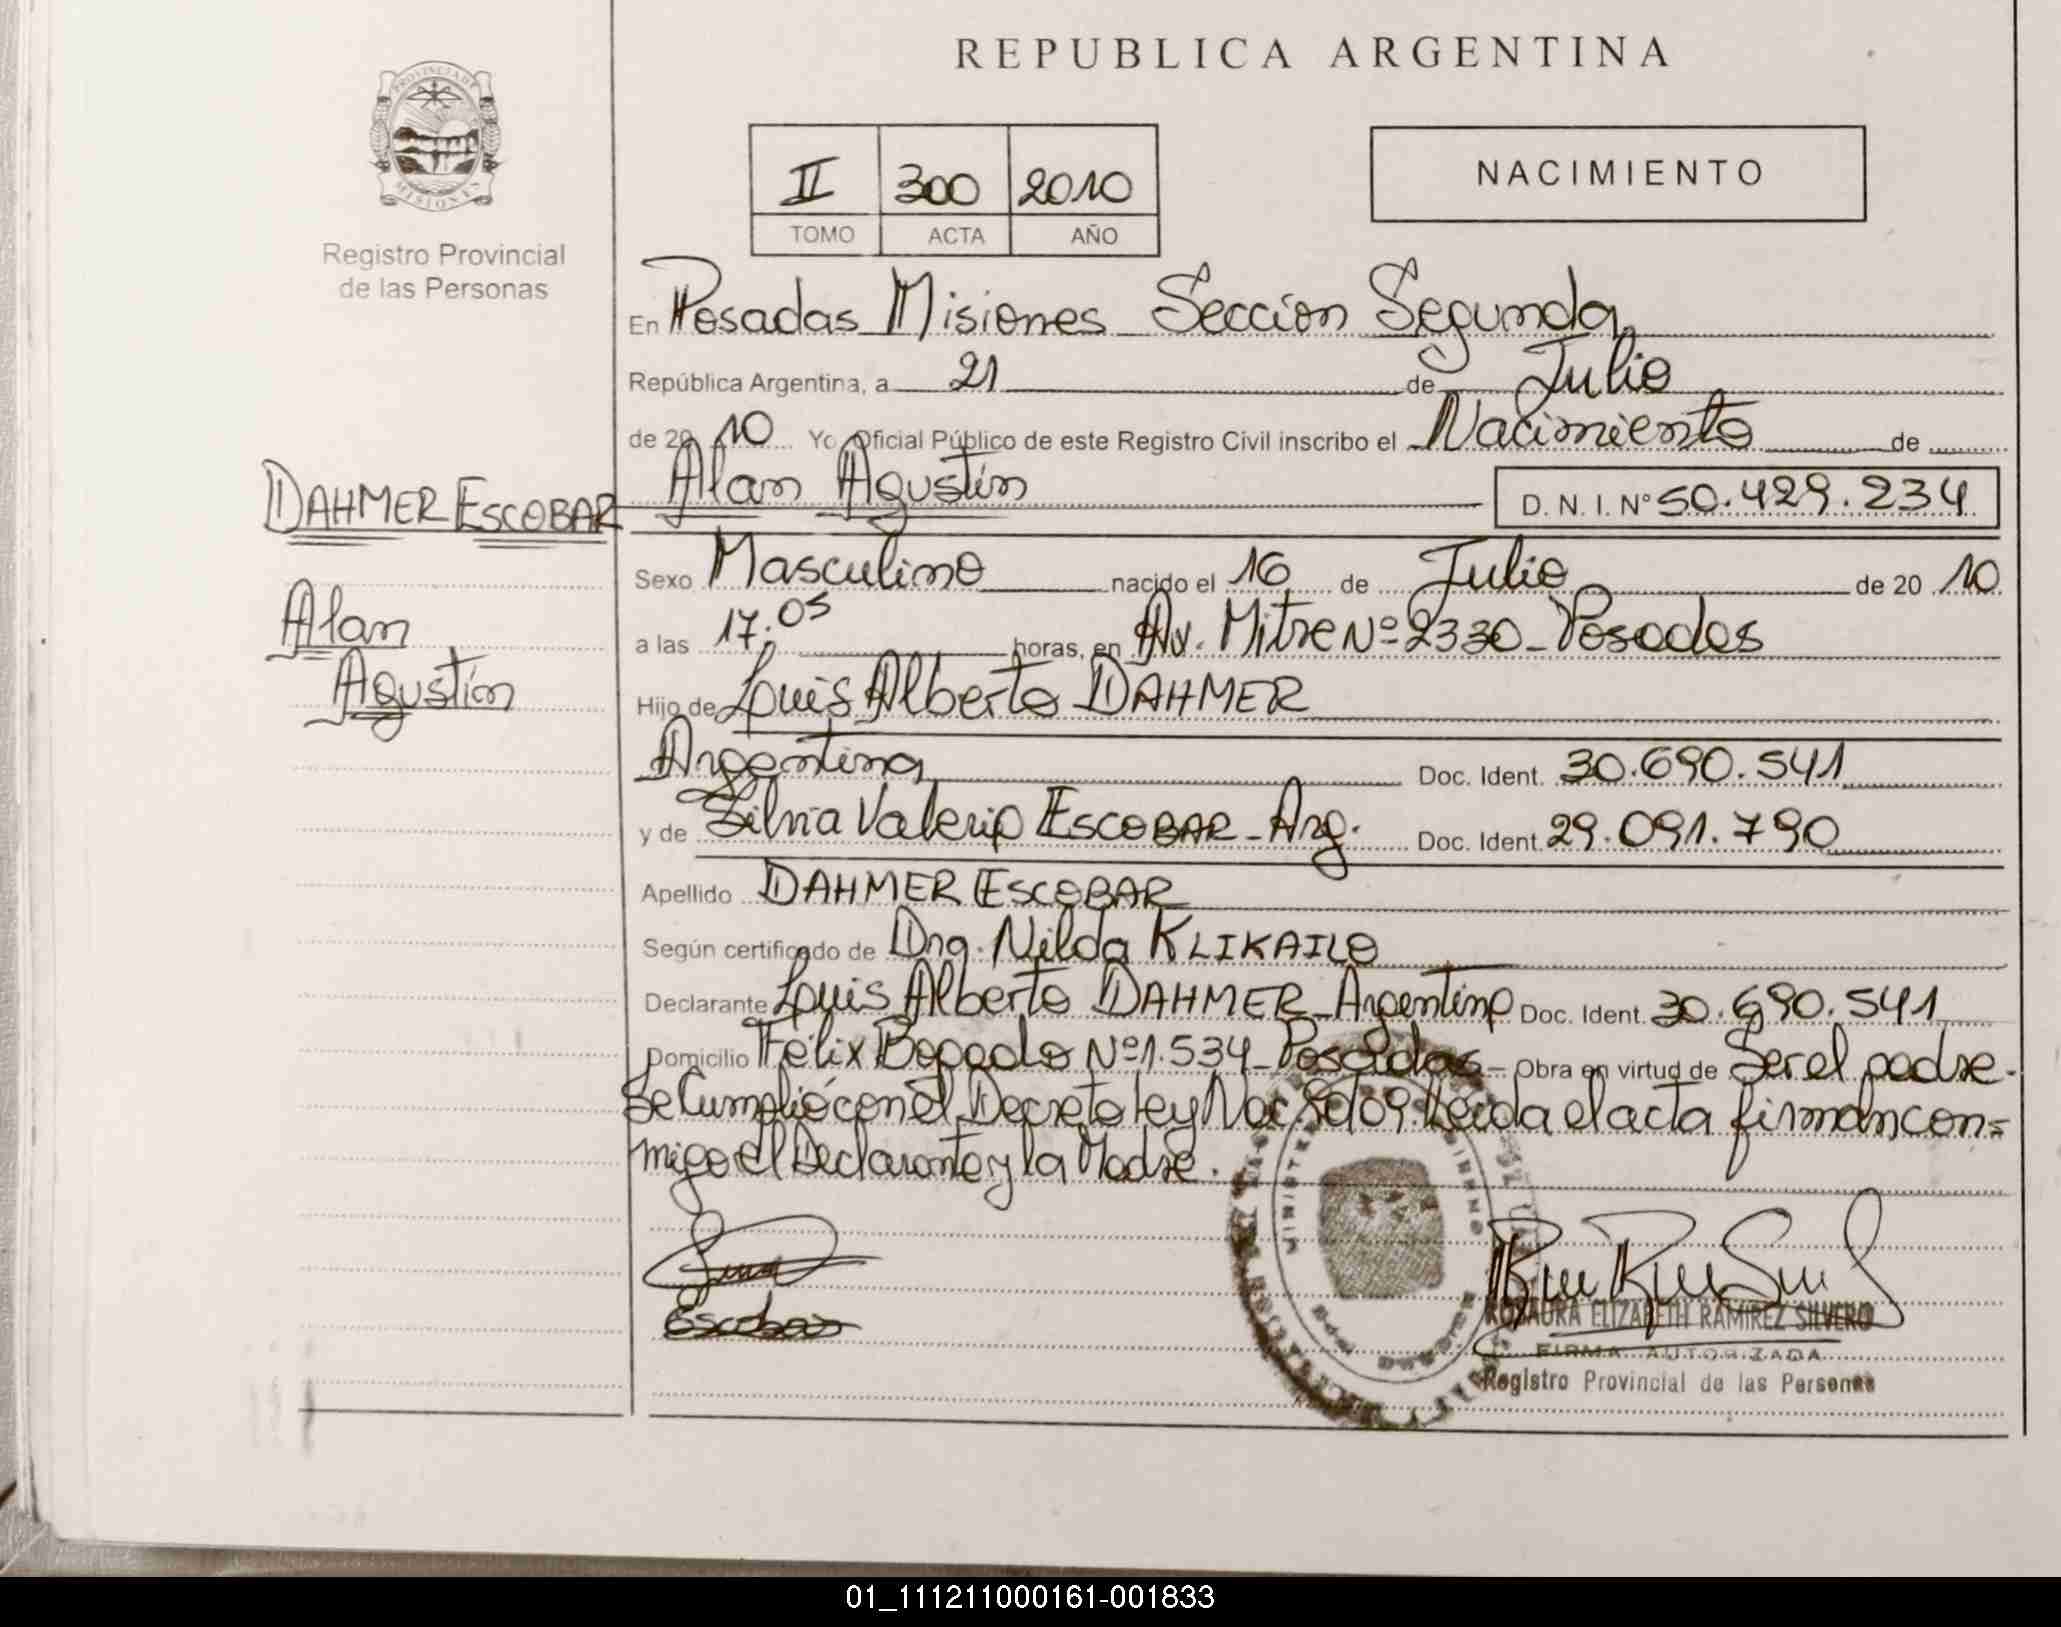 REPUBLICA ARGENTINA
PROVINCIA DE MISIONES
Registro Provincial
de las Personas
II 300 2010
TOMO ACTA AÑO
NACIMIENTO
En Posadas Misiones Sección Segunda
República Argentina, a 21 de Julio
de 2010 Yo Oficial Público de este Registro Civil inscribo el Nacimiento de
DAHMER ESCOBAR
Alan
Agustín
Alan Agustín D. N. I. N° 50.429.234
Sexo Masculino nacido el 16 de Julio de 2010
a las 17.05 horas, en Av. Mitre Nº 2330_Posadas
Hijo de Luis Alberto DAHMER
Argentina Doc. Ident. 30.690.541
y de Silvia Valeria ESCOBAR_Arg. Doc. Ident. 29.091.790
Apellido DAHMER ESCOBAR
Según certificado de Dra. Nilda KLIKAILO
Declarante Luis Alberto DAHMER_Argentino Doc. Ident. 30.690.541
Domicilio Félix Bogado Nº1.534_Posadas_ Obra en virtud de Ser el padre.
Se Cumplió con el Decreto Ley Nac. Leida el acta firman con=
migo el Declarante y la Madre.
Escobar
ROSAURA ELIZABETH RAMIREZ SILVERO
FIRMA AUTORIZADA
Registro Provincial de las Personas
01_111211000161-001833